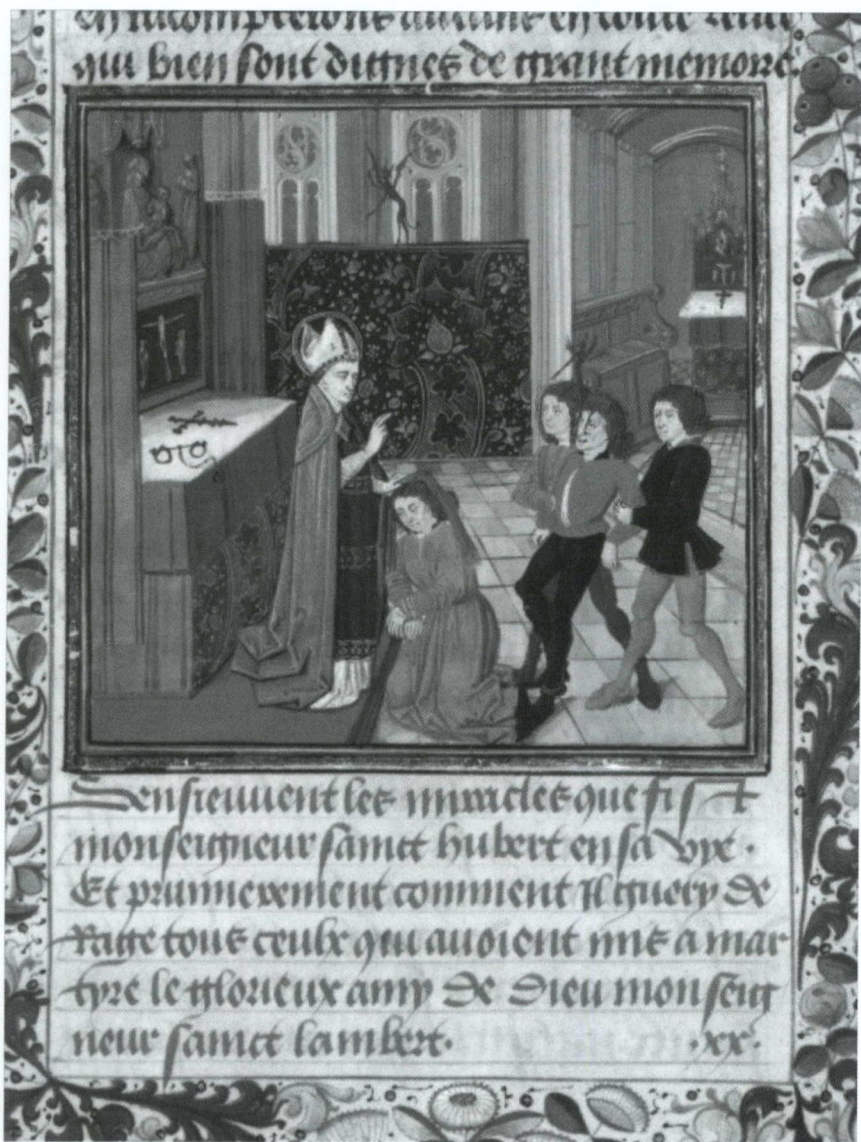 en racompterons aucuns en ceulx
qui bien sont dignes de grant memoire
Sensieuvent les miracles que fist
monseigneur sainct hubert en sa vye.
Et primierement comment Il guery de
Raige tous ceulx qui avoient mis a mar
tyre le glorieux amy de dieu monseig
neur sainct lambert. .xx.